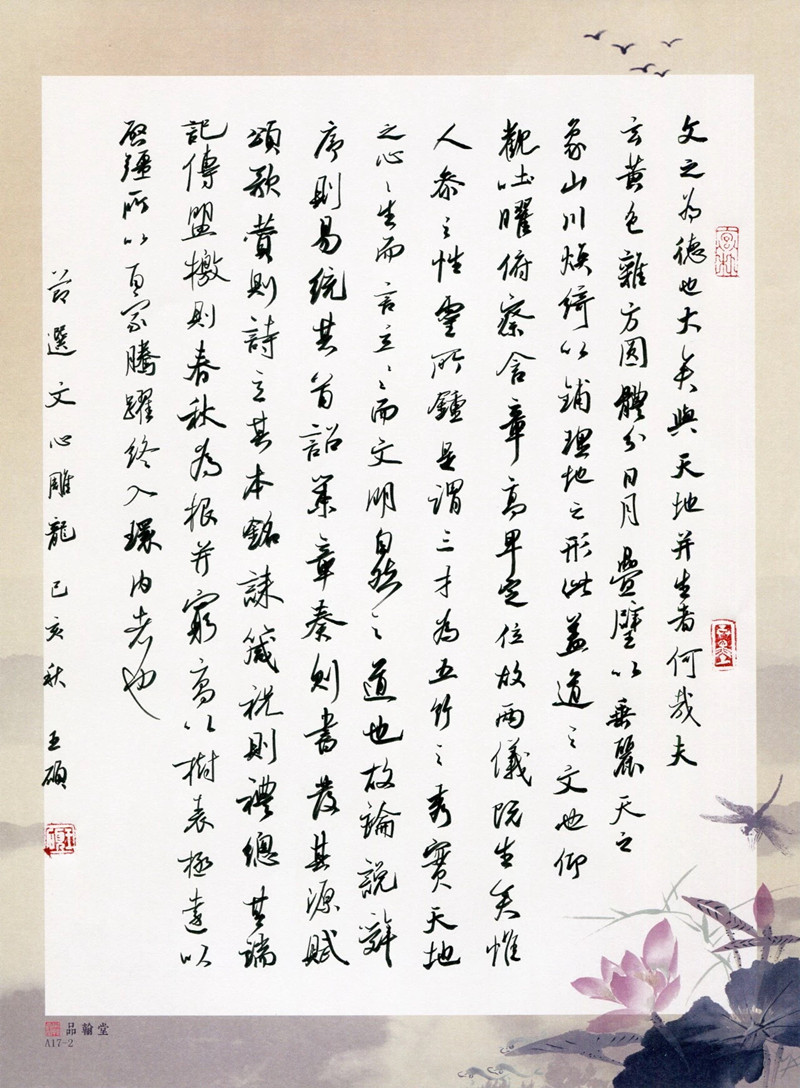 文之為德也大矣與天地并生者何哉夫
玄黃色雜方圆體分日月疊璧以垂麗天之
象山川煥綺以鋪理地之形此蓋道之文也仰
觀吐曜俯察含章高卑定位故两儀既生矣惟
人參之性靈所鍾是謂三才為五行之秀實天地
之心心生而言立言立而文明自然之道也故論說辭
序則易統其首詔策章奏則書發其源賦
頌歌贊則詩立其本銘誄箴祝則禮總其端
記傳盟檄則春秋為根并窮高以樹表極遠以
啟疆所以百家騰躍終入環内者也
節選文心雕龍 己亥秋 王碩
品翰堂
A17-2